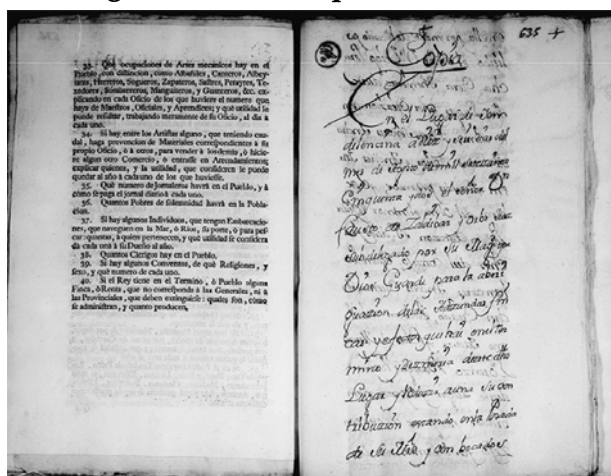 33. Què ocupaciones de Artes mecanicos hay en el
Pueblo, con distincion, como Albañiles, Canteros, Albey-
tares, Herreros, Sogueros, Zapateros, Sastres, Perayres, Te-
xedores, Sombrereros, Manguiteros, y Guanteros, &c. ex-
plicando en cada Oficio de los que huviere el numero que
haya de Maestros, Oficiales, y Aprendices; y què utilidad le
puede resultar, trabajando meramente de su Oficio, al dia à
cada uno.
34. Si hay entre los Artistas alguno, que teniendo cau-
dal, haga prevencion de Materiales correspondientes à su
proprio Oficio, ò à otros, para vender à los demàs, ò hicie-
re algun otro Comercio, ò entrasse en Arrendamientos;
explicar quienes, y la utilidad, que consideren le puede
quedar al año à cada uno de los que huviesse.
35. Què numero de Jornaleros havrà en el Pueblo, y à
còmo se paga el jornal diario à cada uno.
36. Quantos Pobres de solemnidad havrà en la Pobla-
cion.
37. Si hay algunos Individuos, que tengan Embarcacio-
nes, que naveguen en la Mar, ò Rios, su porte, ò para pes-
car: quantas, à quien pertenecen, y què utilidad se considera
dà cada una à su Dueño al año.
38. Quantos Clerigos hay en el Pueblo.
39. Si hay algunos Conventos, de què Religiones, y
sexo, y què numero de cada uno.
40. Si el Rey tiene en el Termino, ò Pueblo alguna
Finca, ò Renta, que no corresponda à las Generales, ni à
las Provinciales, que deben extinguirse: quales son, còmo
se administran, y quanto producen.
635
Copia
En el Lugar de
quinzana a Veinte y seis dias del
mes de Agosto de mill setezientos
Cinquenta y dos el señor Dn
Juez
Subdelegado por su Magd
Dios Guarde para la aberi
guazion de las Haziendas
tas y efectos que hai en el ter
mino y Dezmeria de este dho
Lugar y Reduzir a una su con
tribuzion estando en la Posada
de su Mrd y con